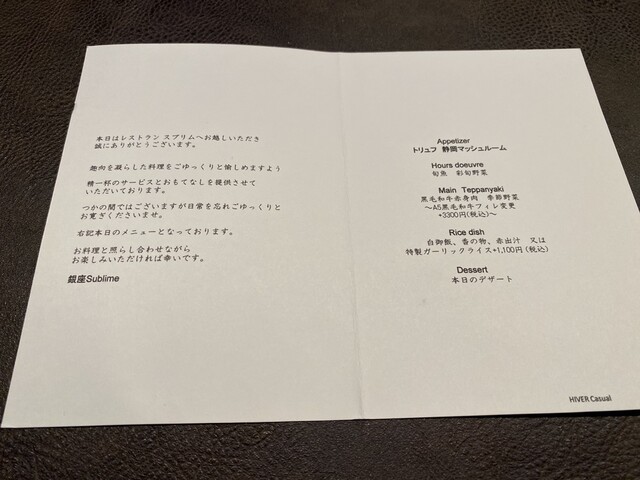 本日はレストラン スブリムへお越しいただき
誠にありがとうございます。
趣向を凝らした料理をごゆっくりと愉しめますよう
精一杯のサービスとおもてなしを提供させて
いただいております。
つかの間ではございますが日常を忘れごゆっくりと
お寛ぎくださいませ。
右記本日のメニューとなっております。
お料理と照らし合わせながら
お楽しみいただければ幸いです。
銀座Sublime
Appetizer
トリュフ 静岡マッシュルーム
Hours doeuvre
旬魚 彩旬野菜
Main Teppanyaki
黒毛和牛赤身肉 季節野菜
～A5黒毛和牛フィレ変更
+3300円(税込)～
Rice dish
白御飯、香の物、赤出汁 又は
特製ガーリックライス+1,100円(税込)
Dessert
本日のデザート
HIVER Casual